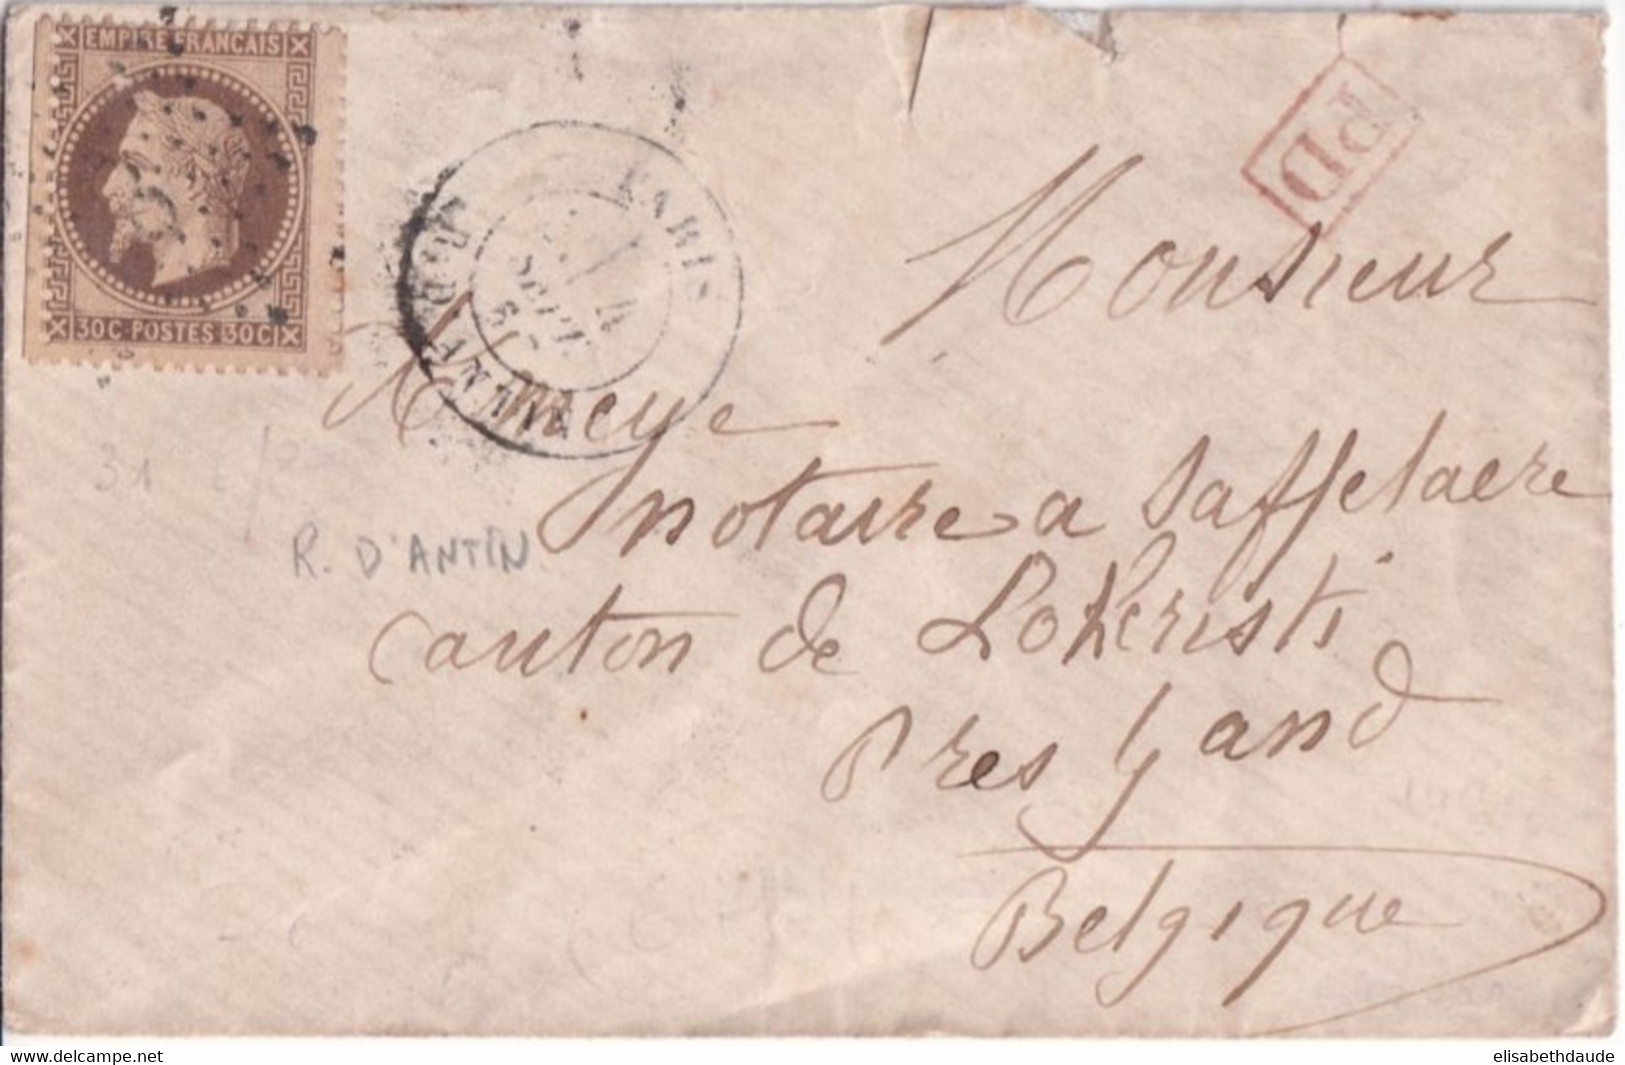 EMPIRE FRANCAIS
30C·POSTES 30C
5
PARIS
R. D'ANTIN
PD
Monsieur
Meye
notaire a Saffelaere
canton de Lokeristi
Pres Gand
Belgique
31
R. D'ANTIN
elisabethdaude